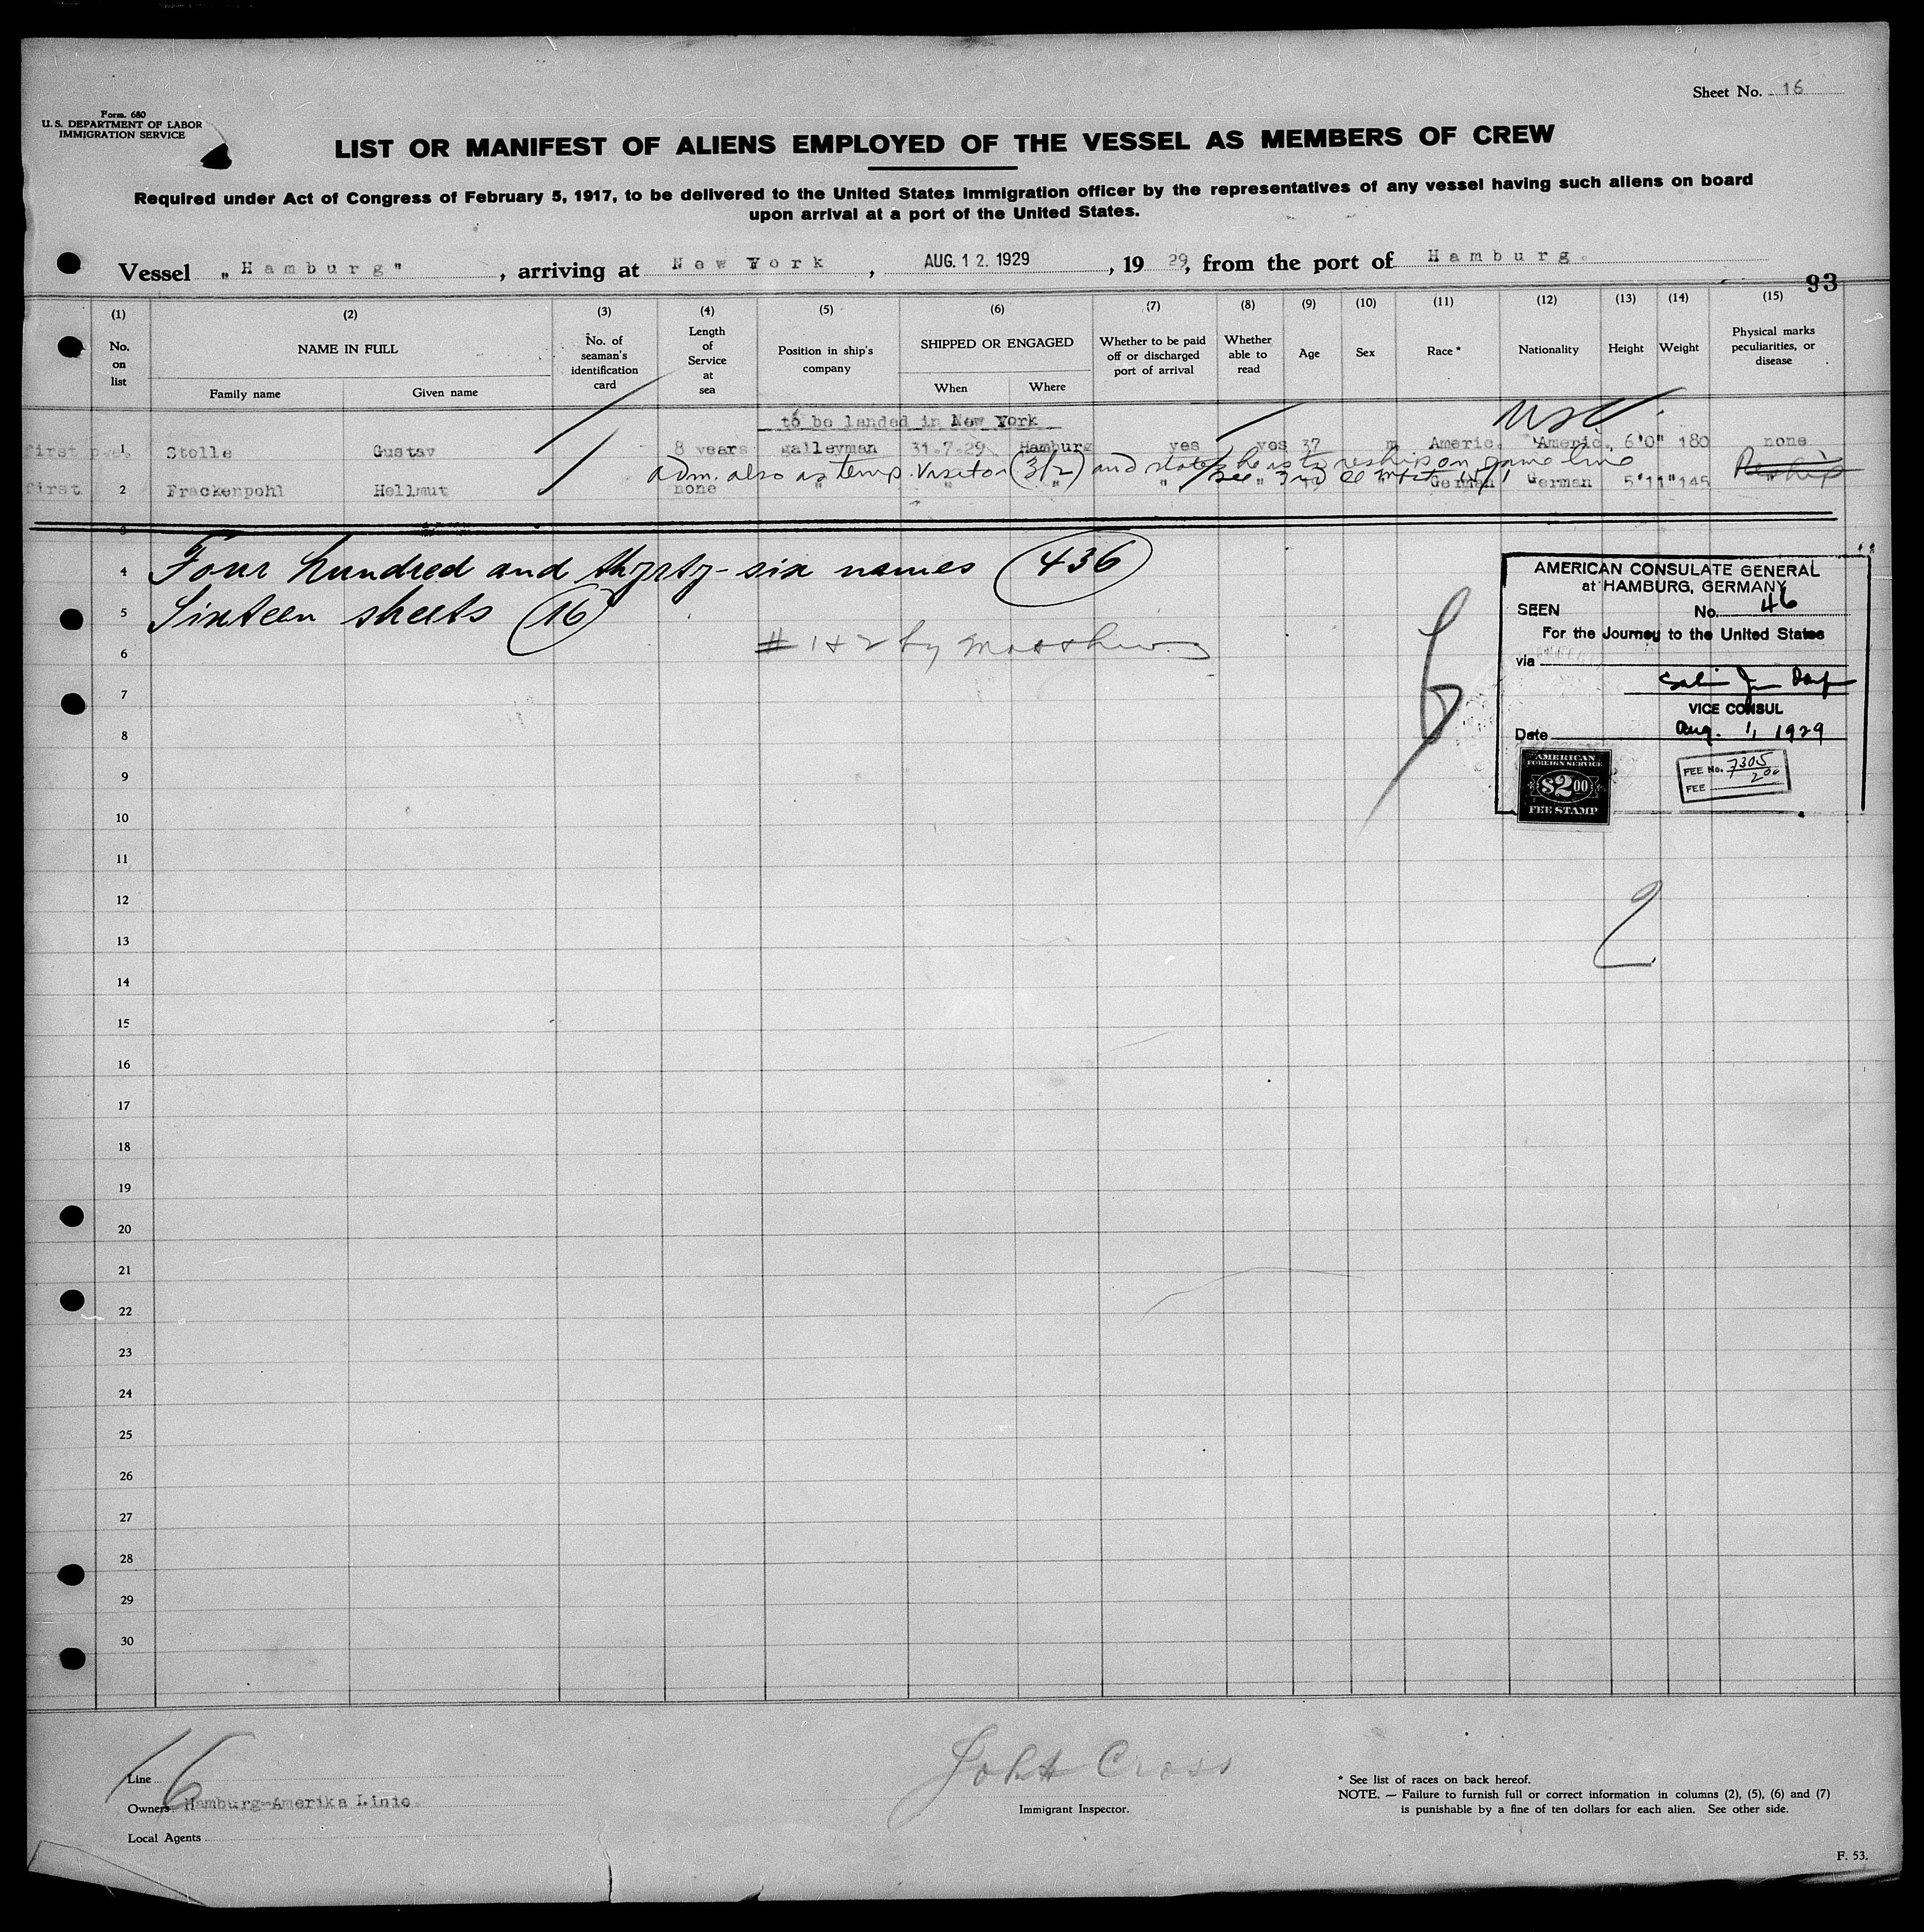 Sheet No. 16
Form. 680
U. S. DEPARTMENT OF LABOR
IMMIGRATION SERVICE
LIST OR MANIFEST OF ALIENS EMPLOYED OF THE VESSEL AS MEMBERS OF CREW
Required under Act of Congress of February 5, 1917, to be delivered to the United States immigration officer by the representatives of any vessel having such aliens on board
upon arrival at a port of the United States.
Vessel "Hamburg", arriving at New York, AUG. 12. 1929, 19 29, from the port of Hamburg.
93
(1) (2) (3) (4) (5) (6) (7) (8) (9) (10) (11) (12) (13) (14) (15)
No. on list
NAME IN FULL
Family name Given name
No. of seaman's identification card
Length of Service at sea
Position in ship's company
SHIPPED OR ENGAGED
When Where
Whether to be paid off or discharged port of arrival
Whether able to read
Age
Sex
Race *
Nationality
Height
Weight
Physical marks peculiarities, or disease
to be landed in New York
USC
first 1 Stolle Gustav 8 years galleyman 31.7.29 Hamburg yes yes 37 m Americ. Americ. 6'0" 180 none
adm. also as temp. Visitor (3/2) and states he is to reship on same line
first 2 Frackenpohl Hellmut none " " " " " " German German 5'11" 145 "
Reship
3
4 Four hundred and thyrty-six names (436)
5 Sixteen sheets (16)
6 # 1 & 2 by
7
8
9
10
11
12
13
14
15
16
17
18
19
20
21
22
23
24
25
26
27
28
29
30
AMERICAN CONSULATE GENERAL
at HAMBURG, GERMANY
SEEN No. 46
For the Journey to the United States
via
VICE CONSUL
Date Aug. 1, 1929
AMERICAN
FOREIGN SERVICE
$2.00
FEE STAMP
FEE No. 7305
FEE 2.00
2
16
Line
Owners Hamburg-Amerika Linie.
Local Agents
John Cross
Immigrant Inspector.
* See list of races on back hereof.
NOTE. — Failure to furnish full or correct information in columns (2), (5), (6) and (7)
is punishable by a fine of ten dollars for each alien. See other side.
F. 53.